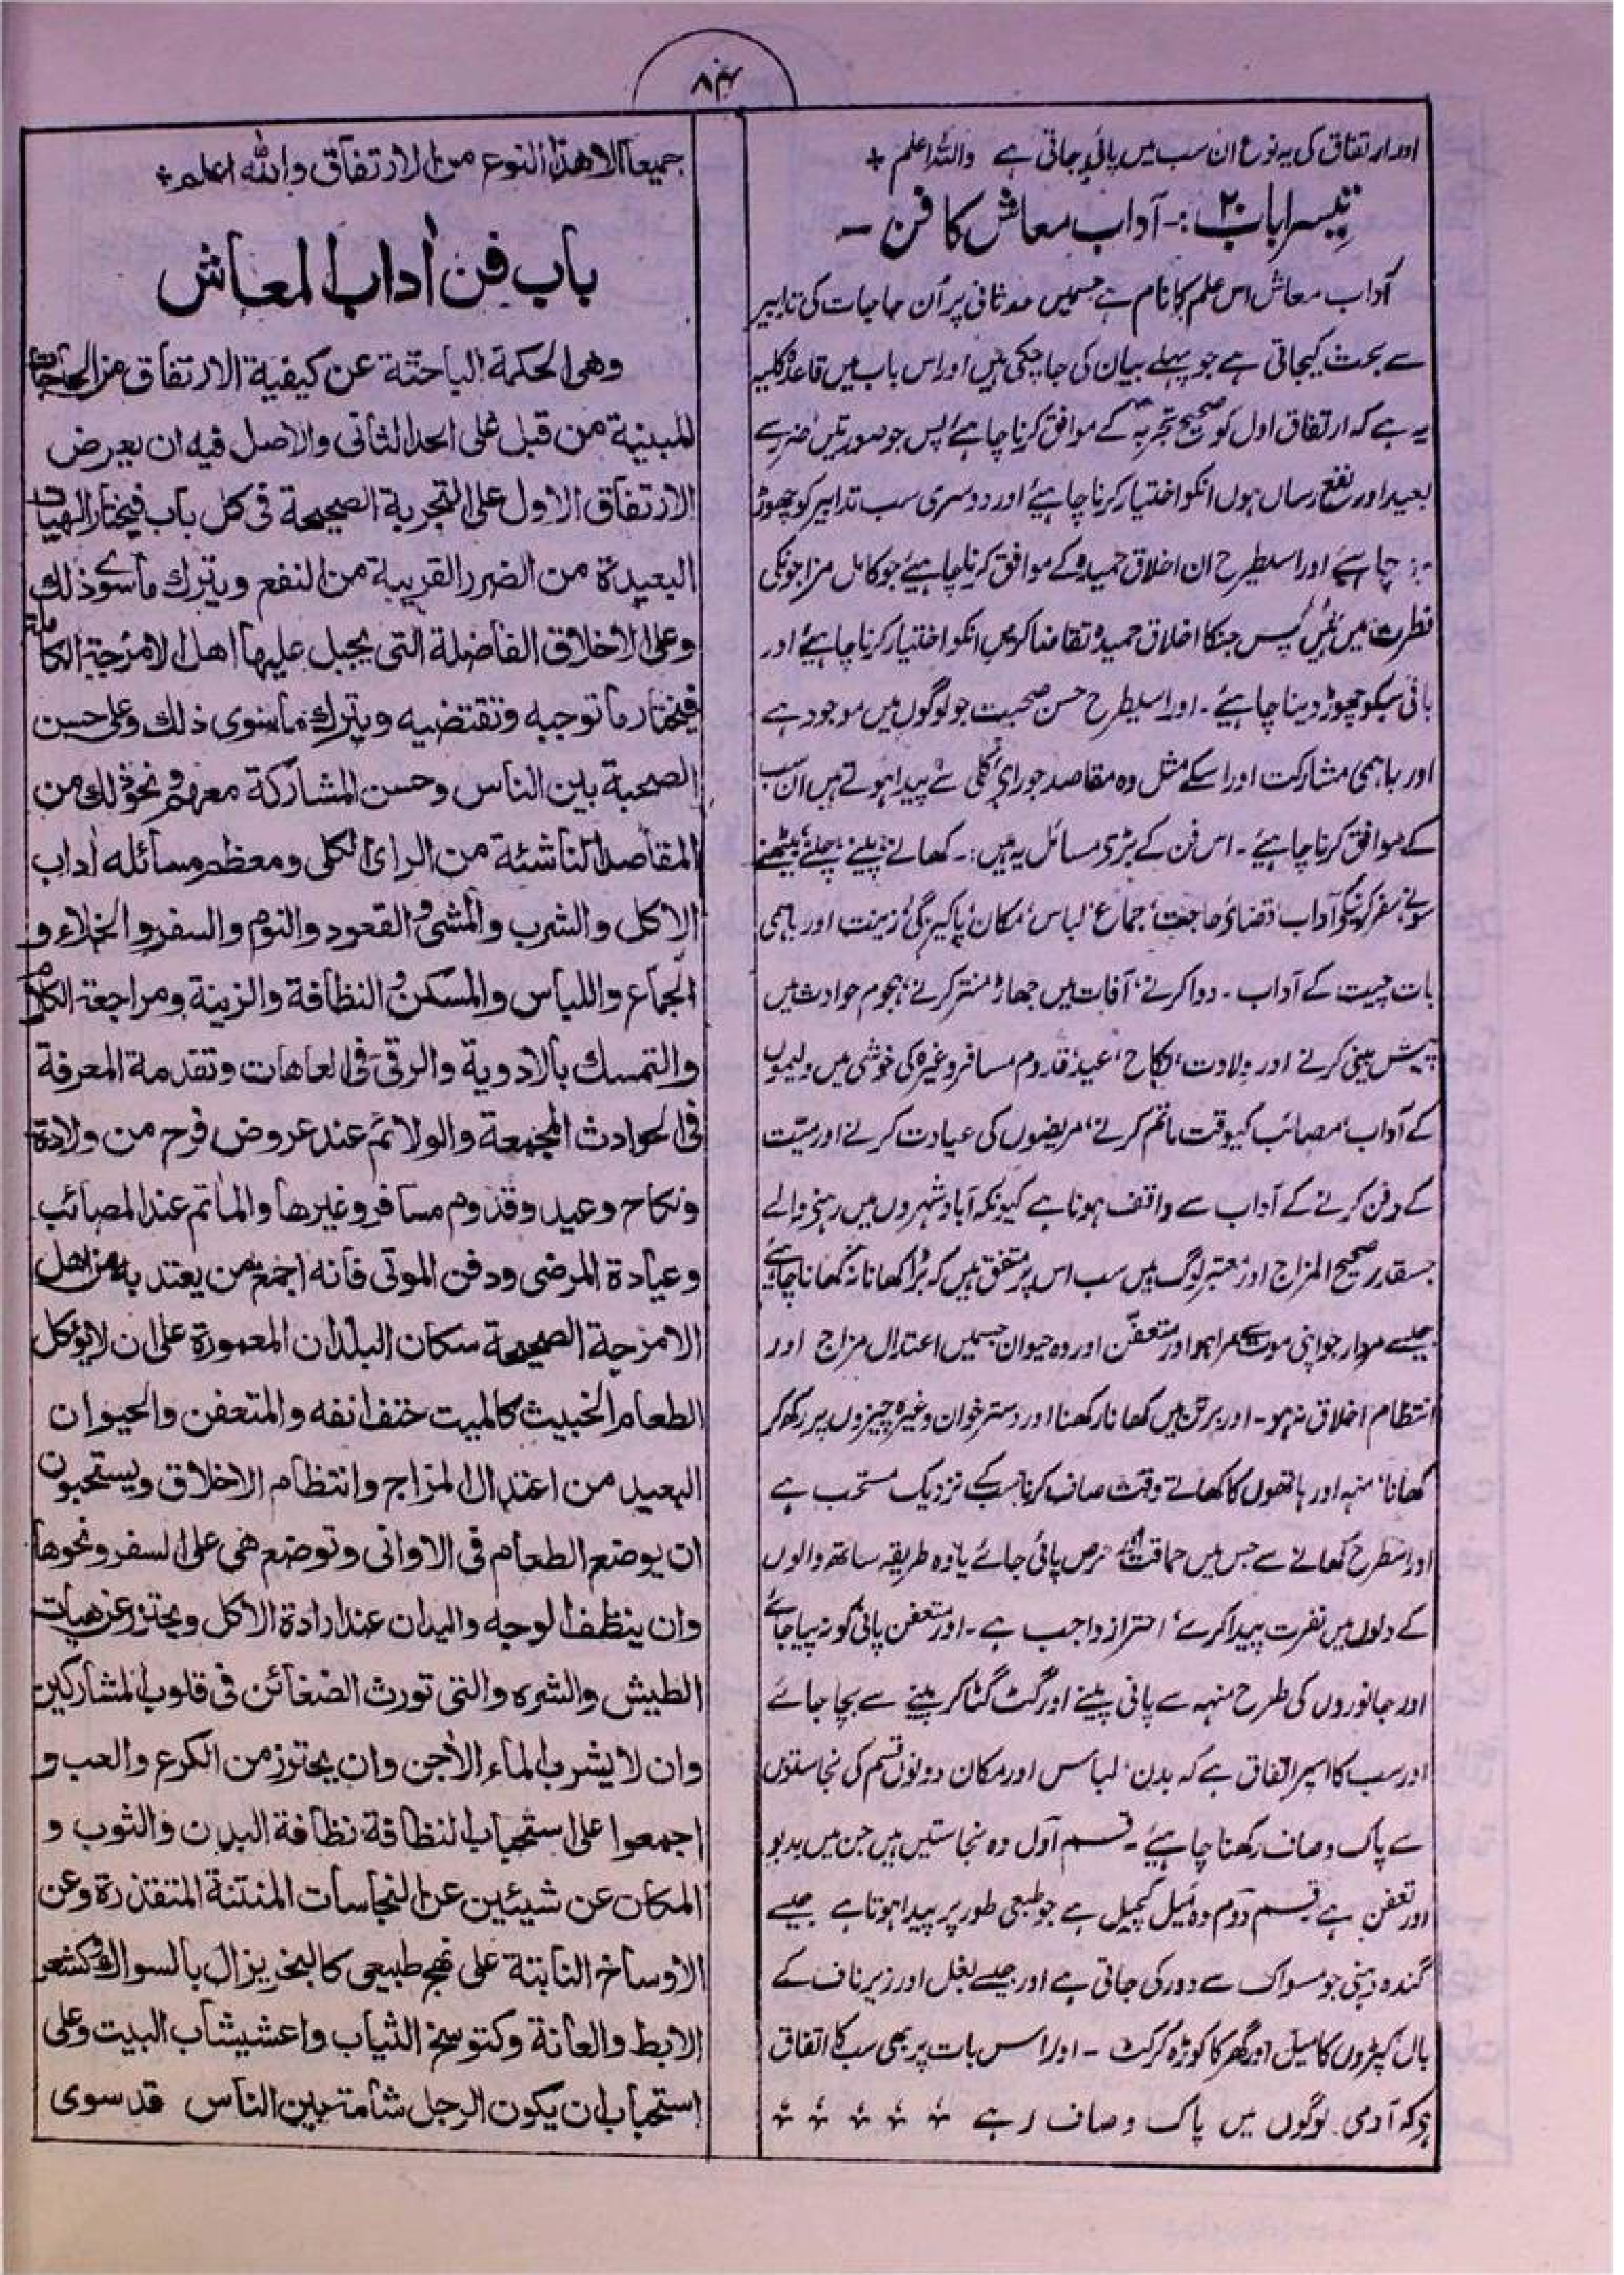 ۸۴
اور ارتفاق کی یہ نوع ان سب میں پائی جاتی ہے واللہ اعلم +
تیسرا باب ۲۰:- آداب معاش کا فن -
آداب معاش اس علم کا نام ہے جسمیں حد ثانی پر اُن حاجات کی تدابیر
سے بحث کیجاتی ہے جو پہلے بیان کی جا چکی ہیں اور اس باب میں قاعدہ کلیہ
یہ ہے کہ ارتفاق اول کو صحیح تجربہ کے موافق کرنا چاہئے پس جو صورتیں ضرر سے
بعید اور نفع رساں ہوں انکو اختیار کرنا چاہیئے اور دوسری سب تدابیر کو چھوڑ
چاہئے اور اسیطرح ان اخلاق حمیدہ کے موافق کرنا چاہیئے جو کامل مزاجونکی
فطرت میں ہیں پس جنکا اخلاق حمیدہ تقاضا کریں انکو اختیار کرنا چاہیئے اور
باقی سبکو چھوڑ دینا چاہیئے - اور اسیطرح حسن صحبت جو لوگوں میں موجود ہے
اور باہمی مشارکت اور اسکے مثل وہ مقاصد جو رای کلی سے پیدا ہوتے ہیں ان سب
کے موافق کرنا چاہیئے - اس فن کے بڑی مسائل یہ ہیں :- کھانے پینے چلنے بیٹھنے
سونے سفر کرنیکے آداب قضائے حاجت، جماع، لباس، مکان، پاکیزگی، زینت اور باہمی
بات چیت کے آداب - دوا کرنے، آفات میں جھاڑ منتر کرنے، ہجوم حوادث میں
پیش بینی کرنے اور ولادت، نکاح، عید، قدوم مسافر وغیرہ کی خوشی میں ولیموں
کے آداب، مصائب کیوقت ماتم کرنے، مریضوں کی عیادت کرنے اور میّت
کے دفن کرنے کے آداب سے واقف ہونا ہے کیونکہ آباد شہروں میں رہنی والے
جسقدر صحیح المزاج اور معتبر لوگ ہیں سب اس پر متفق ہیں کہ بُرا کھانا نہ کھانا چاہیے
جیسے مردار جو اپنی موت سے مرا ہو اور متعفّن اور وہ حیوان جسمیں اعتدال مزاج اور
انتظام اخلاق نہ ہو - اور برتن میں کھانا رکھنا اور دسترخوان وغیرہ چیزوں پر رکھ کر
کھانا، منہہ اور ہاتھوں کا کھاتے وقت صاف کرنا سب کے نزدیک مستحب ہے
اور اسطرح کھانے سے جس میں حماقت اور حرص پائی جائے یا وہ طریقہ ساتھ والوں
کے دلوں میں نفرت پیدا کرے، احتراز واجب ہے - اور متعفن پانی کو نہ پیا جائے
اور جانوروں کی طرح منہہ سے پانی پینے اور گٹ گٹا کر پینے سے بچا جائے
اور سب کا اسپر اتفاق ہے کہ بدن، لباس اور مکان دونوں قسم کی نجاستوں
سے پاک و صاف رکھنا چاہیئے - قسم اول وہ نجاستیں ہیں جن میں بدبو
اور تعفن ہے قسم دوم وہ میل کچیل ہے جو طبعی طور پر پیدا ہوتا ہے جیسے
گندہ دہنی جو مسواک سے دور کی جاتی ہے اور جیسے بغل اور زیر ناف کے
بال، کپڑوں کا میل اور گھر کا کوڑہ کرکٹ - اور اس بات پر بھی سب کا اتفاق
ہو کہ آدمی لوگوں میں پاک و صاف رہے
جمیعا الا ھذا النوع من الارتفاق واللہ اعلم +
باب فن اٰداب المعاش
وھی الحکمۃ الباحثۃ عن کیفیۃ الارتفاق من الحاجات
المبینیۃ من قبل علی الحد الثانی والاصل فیہ ان یعرض
الارتفاق الاول علی التجربۃ الصحیحۃ فی کل باب فیختار الھیات
البعیدۃ من الضرر القریبۃ من النفع ویترک ماسوی ذلک
وعلی الاخلاق الفاضلۃ التی یجبل علیھا اھل الامزجۃ الکاملۃ
فیختار ما توجبہ وتقتضیہ ویترک ماسوی ذلک وعلی حسن
الصحبۃ بین الناس وحسن المشارکۃ معھم ونحو ذلک من
المقاصد الناشئۃ من الرای الکلی ومعظم مسائلہ اٰداب
الاکل والشرب والمشی والقعود والنوم والسفر والخلاء و
الجماع واللباس والمسکن والنظافۃ والزینۃ ومراجعۃ الکلام
والتمسک بالادویۃ والرقی فی العاھات وتقدمۃ المعرفۃ
فی الحوادث المجتمعۃ والولائم عند عروض فرح من ولادۃ
ونکاح وعید وقدوم مسافر وغیرھا والمأتم عند المصائب
وعیادۃ المرضی ودفن الموتی فانہ اجمع من یعتد بہ من اھل
الامزجۃ الصحیحۃ سکان البلدان المعمورۃ علی ان لایؤکل
الطعام الخبیث کالمیت حتف انفہ والمتعفن والحیوان
البعید من اعتدال المزاج وانتظام الاخلاق ویستحبون
ان یوضع الطعام فی الاوانی وتوضع ھی علی السفر ونحوھا
وان ینظف الوجہ والیدان عند ارادۃ الاکل ویحترز عن ھیات
الطیش والشرہ والتی تورث الضغائن فی قلوب المشارکین
وان لا یشرب الماء الاٰجن وان یحترز من الکرع والعب و
اجمعوا علی استحباب النظافۃ نظافۃ البدن والثوب و
المکان عن شیئین عن النجاسات المنتنۃ المتقذرۃ وعن
الاوساخ النابتۃ علی نھج طبیعی کالبخر یزال بالسواک وکشعر
الابط والعانۃ وکتوسخ الثیاب واعشیشاب البیت وعلی
استحباب ان یکون الرجل شامۃ بین الناس قد سوی